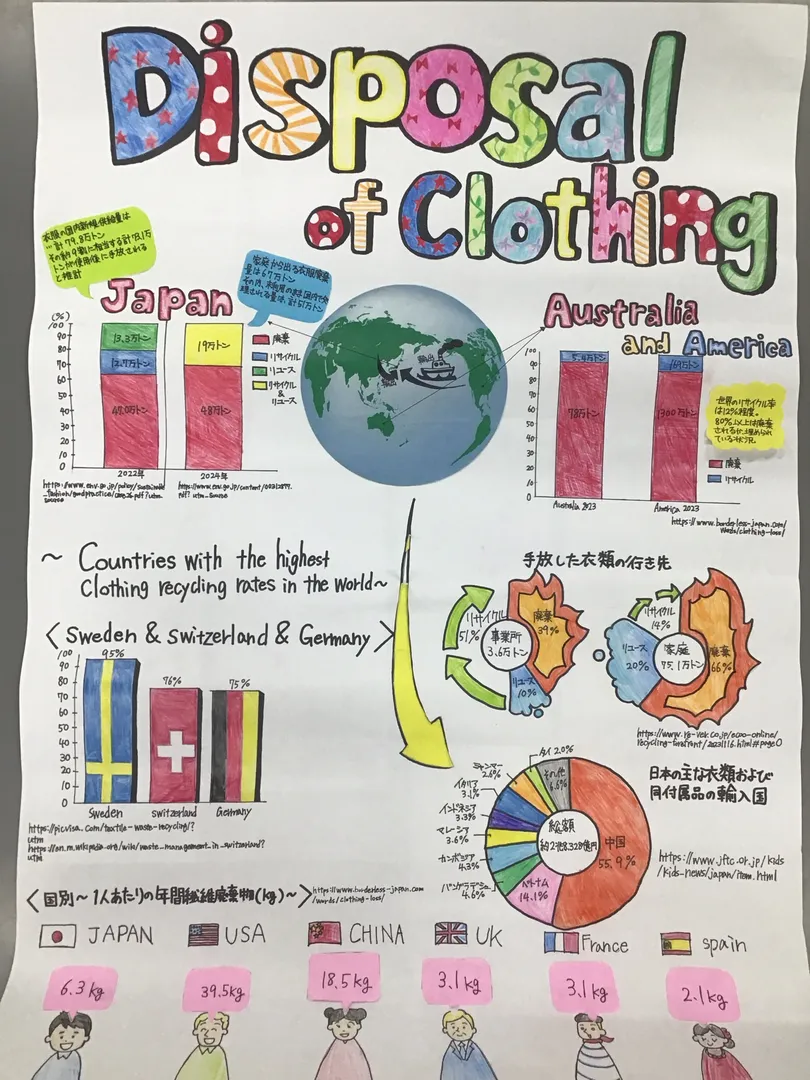 Disposal
of Clothing
衣類の国内新規供給量は
計79.8万トン
その約9割に相当する計73.1万
トンが使用後に手放される
と推計
家庭から出る衣服廃棄
量は67万トン
Japan
Australia
and America
(%)
100
90
80
70
60
50
40
30
20
10
0
13.3万トン
12.7万トン
47.0万トン
19万トン
48万トン
2022年
2024年
廃棄
リサイクル
リユース
リサイクル
&
リユース
輸出
100
90
80
70
60
50
40
30
20
10
0
5.4万トン
78万トン
Australia 2023
America 2023
世界のリサイクル率
は12%程度。
80%以上は廃棄
されるか、埋められ
ている状況。
廃棄
リサイクル
https://www.borderless-japan.com/
words/clothing-loss/
~ Countries with the highest
Clothing recycling rates in the world~
<Sweden & switzerland & Germany>
100
90
80
70
60
50
40
30
20
10
0
95%
76%
75%
Sweden
switzerland
Germany
https://picvisa.com/textile-waste-recycling/?
utm
手放した衣類の行き先
リサイクル
51%
廃棄
39%
事業所
3.6万トン
リユース
10%
リサイクル
14%
リユース
20%
家庭
75.1万トン
廃棄
66%
日本の主な衣類および
同付属品の輸入国
タイ 2.0%
その他
6.6%
ミャンマー
2.6%
イタリア
3.1%
インドネシア
3.3%
マレーシア
3.6%
カンボジア
4.3%
バングラデシュ
4.6%
ベトナム
14.1%
中国
55.9%
総額
https://www.jftc.or.jp/kids
/kids-news/japan/item.html
<国別~1人あたりの年間繊維廃棄物(kg)~>
https://www.borderless-japan.com
/words/clothing-loss/
JAPAN
USA
CHINA
UK
France
spain
6.3kg
39.5kg
18.5kg
3.1kg
3.1kg
2.1kg